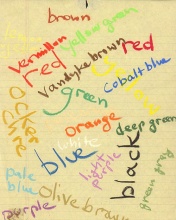 brown
yellow green
vermillon
red
red
Vandyke brown
Cobalt blue
green
ocker
orange
deep green
white
blue
light purple
black
pale blue
olive brown
purple